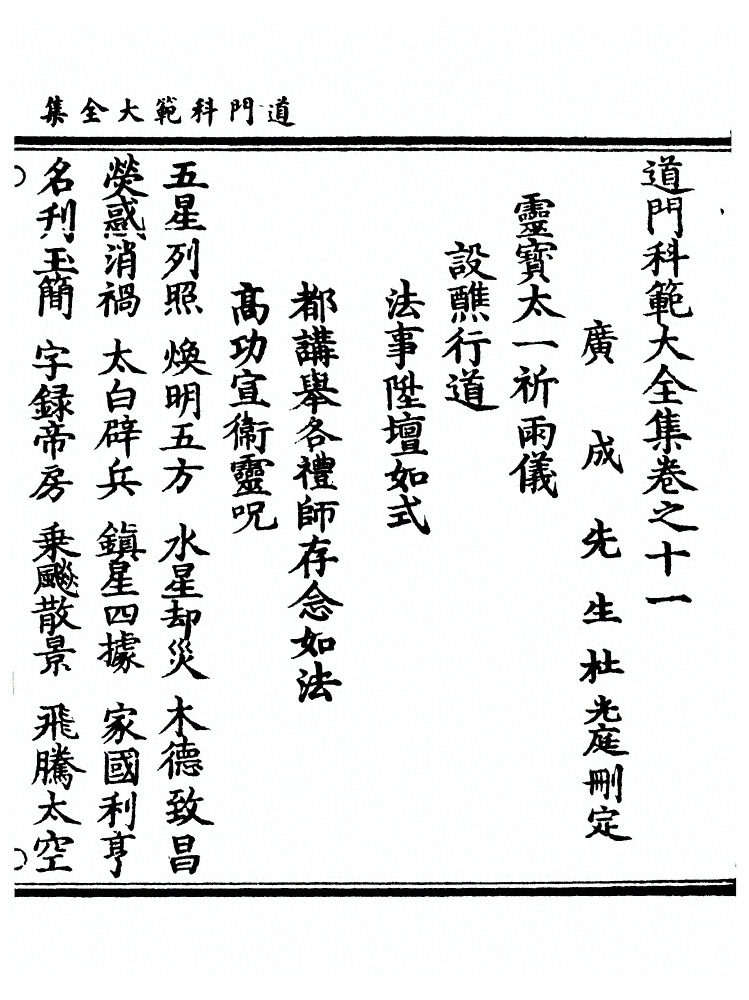 道門科範大全集
道門科範大全集卷之十一
廣成先生杜光庭刪定
靈寶太一祈雨儀
設醮行道
法事陞壇如式
都講舉各禮師存念如法
高功宣衛靈呪
五星列照 煥明五方 水星却災 木德致昌
熒惑消禍 太白辟兵 鎮星四據 家國利亨
名刋玉簡 字録帝房 乗飈散景 飛騰太空